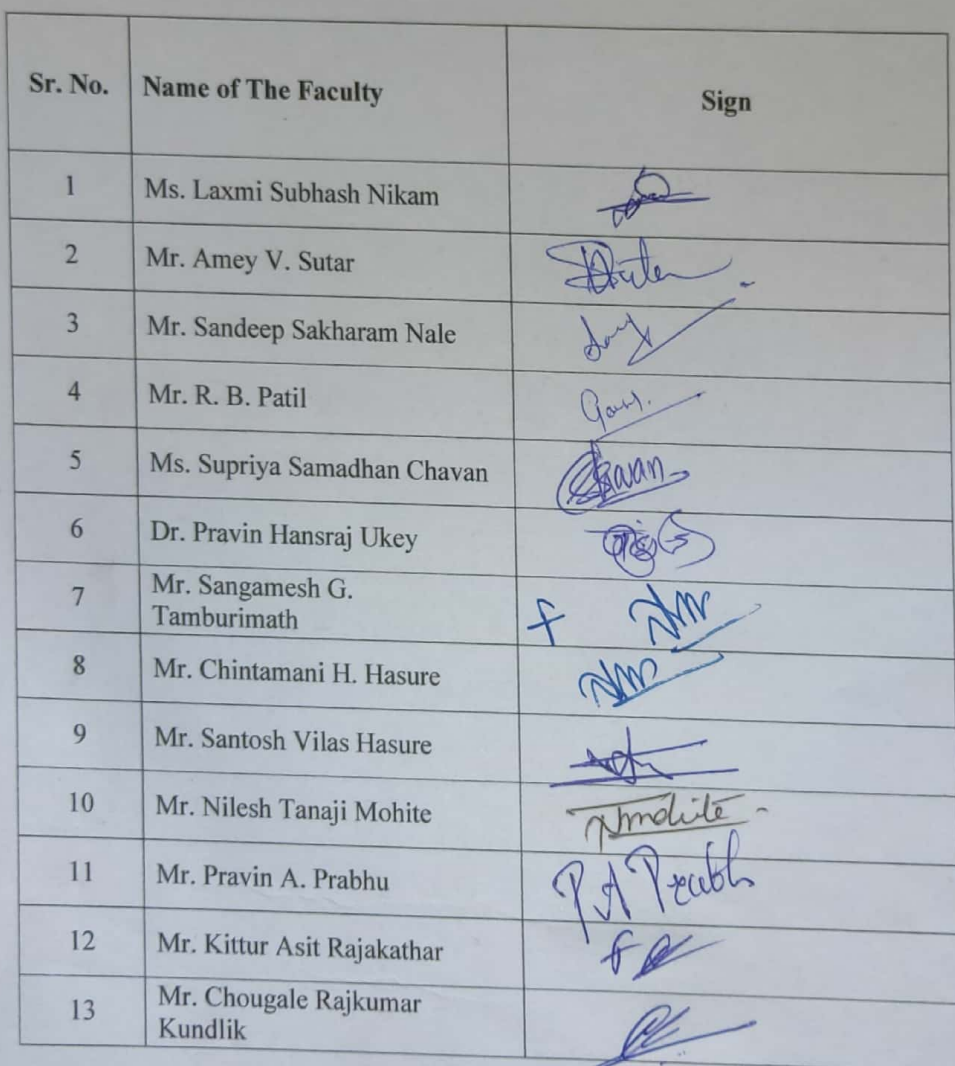 Sr. No. Name of The Faculty Sign
1 Ms. Laxmi Subhash Nikam
2 Mr. Amey V. Sutar
3 Mr. Sandeep Sakharam Nale
4 Mr. R. B. Patil
5 Ms. Supriya Samadhan Chavan
6 Dr. Pravin Hansraj Ukey
7 Mr. Sangamesh G.
Tamburimath
8 Mr. Chintamani H. Hasure
9 Mr. Santosh Vilas Hasure
10 Mr. Nilesh Tanaji Mohite
11 Mr. Pravin A. Prabhu P A Prabh
12 Mr. Kittur Asit Rajakathar
13 Mr. Chougale Rajkumar
Kundlik